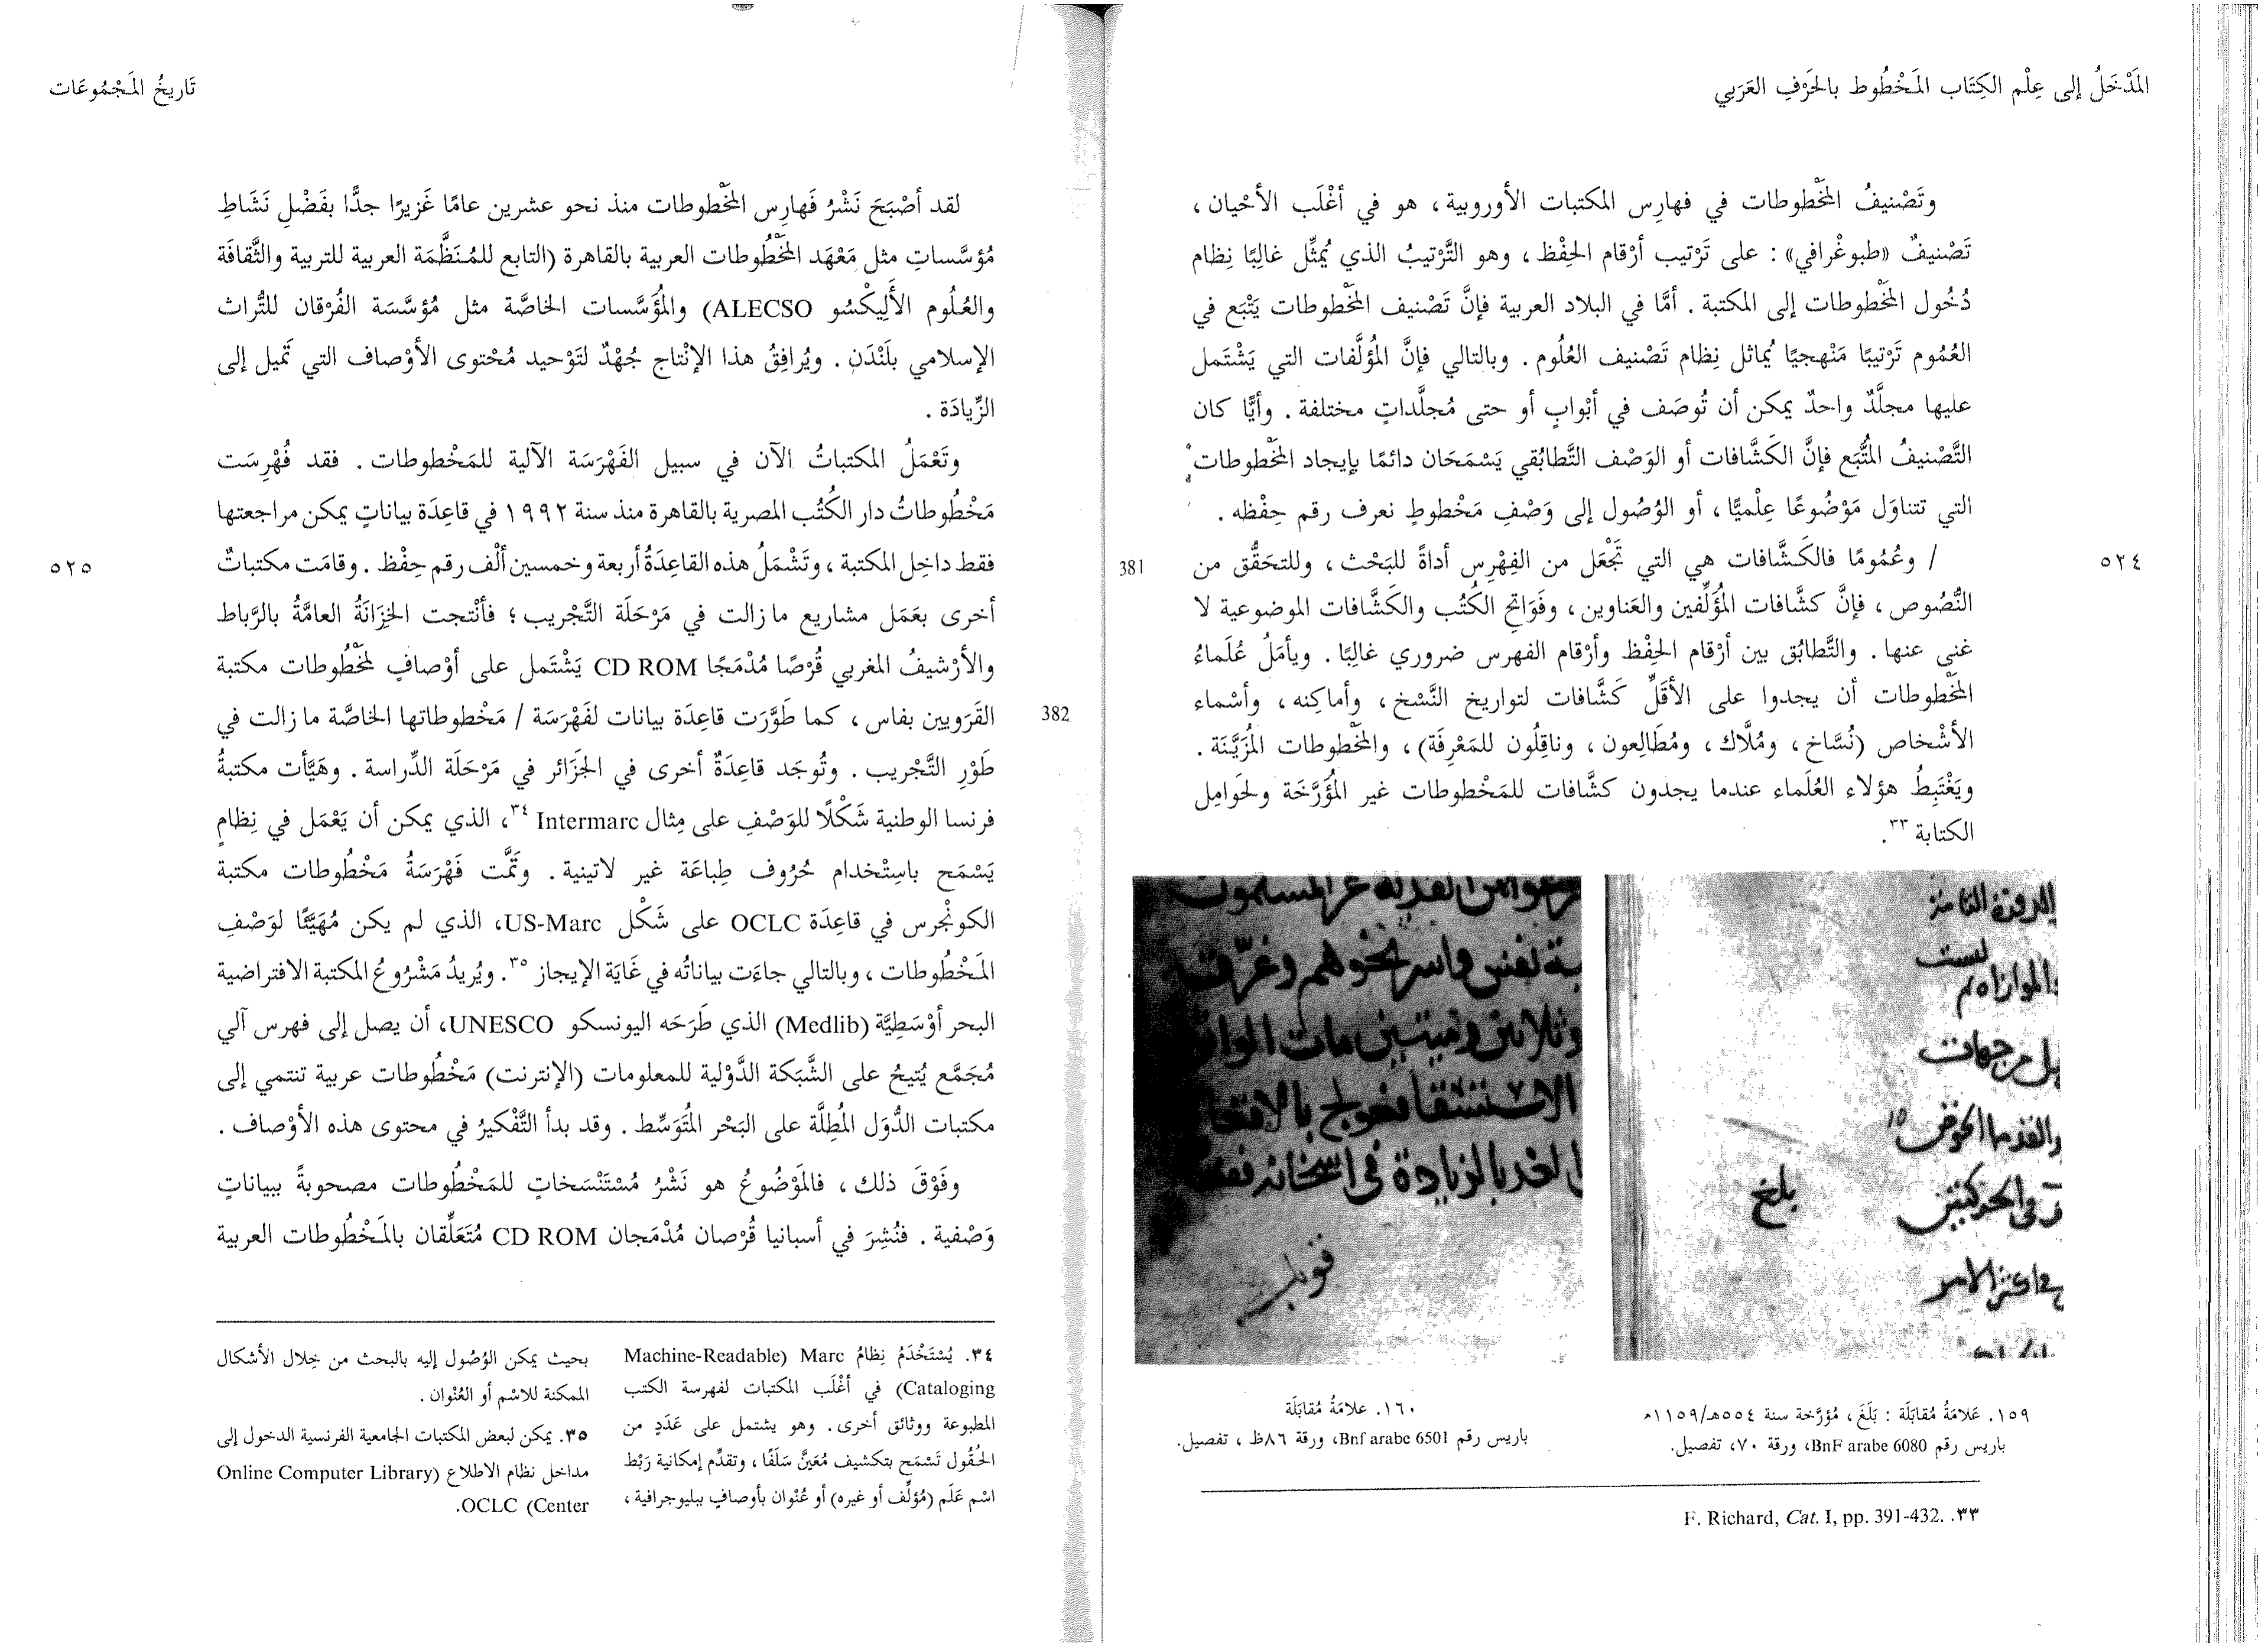 المَدْخَلُ إلى عِلْم الكِتَاب المَخْطُوط بالحَرْفِ العَرَبي
وتَصْنيفُ المَخْطوطات في فهارِس المكتبات الأوروبية، هو في أغْلَب الأحْيان،
تَصْنيفٌ «طبوغْرافي»: على تَرْتيب أرْقام الحِفْظ، وهو التَّرْتيبُ الذي يُمثِّل غالِبًا نِظام
دُخُول المَخْطوطات إلى المكتبة. أمَّا في البلاد العربية فإنَّ تَصْنيف المَخْطوطات يَتْبَع في
العُمُوم تَرْتيبًا مَنْهجيًا يُماثل نِظام تَصْنيف العُلُوم. وبالتالي فإنَّ المُؤلَّفات التي يَشْتَمل
عليها مجلَّدٌ واحدٌ يمكن أن تُوصَف في أبْوابٍ أو حتى مُجلَّداتٍ مختلفة. وأيًّا كان
التَّصْنيفُ المُتَّبَع فإنَّ الكَشَّافات أو الوَصْف التَّطابُقي يَسْمَحَان دائمًا بإيجاد المَخْطوطات
التي تتناوَل مَوْضُوعًا عِلْميًّا، أو الوُصُول إلى وَصْفِ مَخْطوطٍ نعرف رقم حِفْظه.
/ وعُمُومًا فالكَشَّافات هي التي تَجْعَل من الفِهْرِس أداةً للبَحْث، وللتحَقُّق من
381
٥٢٤
النُّصُوص، فإنَّ كشَّافات المُؤلِّفين والعَناوين، وفَوَاتِح الكُتُب والكَشَّافات الموضوعية لا
غنى عنها. والتَّطابُق بين أرْقام الحِفْظ وأرْقام الفهرس ضروري غالِبًا. ويأمَلُ عُلَماءُ
المَخْطوطات أن يجدوا على الأقَلِّ كَشَّافات لتواريخ النَّسْخ، وأماكِنه، وأسْماء
الأشْخاص (نُسَّاخ، ومُلَّاك، ومُطَالِعون، وناقِلُون للمَعْرِفَة)، والمَخْطوطات المُزَيَّنَة.
ويَغْتَبِطُ هؤلاء العُلَماء عندما يجدون كشَّافات للمَخْطوطات غير المُؤَرَّخَة ولحَوامِل
الكتابة ٣٣.
بلغ
قوبل
١٥٩. عَلامَةُ مُقابَلَة: بَلَغَ، مُؤرَّخة سنة ٥٥٤هـ/١١٥٩م
باريس رقم BnF arabe 6080، ورقة ٧٠، تفصيل.
١٦٠. علامَةُ مُقابَلَة
باريس رقم Bnf arabe 6501، ورقة ٨٦ظ، تفصيل.
٣٣. F. Richard, Cat. I, pp. 391-432.
تَاريخُ المَجْمُوعَات
لقد أصْبَحَ نَشْرُ فَهارِس المَخْطوطات منذ نحو عشرين عامًا غَزيرًا جدًّا بفَضْلِ نَشَاطِ
مُؤسَّساتٍ مثل مَعْهَد المَخْطُوطات العربية بالقاهرة (التابع للمُنَظَّمَة العربية للتربية والثَّقافَة
والعُلُوم الأَلِيكْسُو ALECSO) والمُؤَسَّسات الخاصَّة مثل مُؤسَّسَة الفُرْقان للتُّراث
الإسلامي بلَنْدَن. ويُرافِقُ هذا الإنْتاج جُهْدٌ لتَوْحيد مُحْتوى الأوْصاف التي تَميل إلى
الزِّيادَة.
وتَعْمَلُ المكتباتُ الآن في سبيل الفَهْرَسَة الآلية للمَخْطوطات. فقد فُهْرِسَت
مَخْطُوطاتُ دار الكُتُب المصرية بالقاهرة منذ سنة ١٩٩٢ في قاعِدَة بياناتٍ يمكن مراجعتها
فقط داخِل المكتبة، وتَشْمَلُ هذه القاعِدَةُ أربعة وخمسين ألْف رقم حِفْظ. وقامَت مكتباتٌ
٥٢٥
أخرى بعَمَل مشاريع مازالت في مَرْحَلَة التَّجْريب؛ فأنْتجت الخِزَانَةُ العامَّةُ بالرَّباط
والأرْشيفُ المغربي قُرْصًا مُدْمَجًا CD ROM يَشْتَمل على أوْصافٍ لمَخْطُوطات مكتبة
القَرَويين بفاس، كما طَوَّرَت قاعِدَة بيانات لفَهْرَسَة / مَخْطوطاتها الخاصَّة مازالت في
382
طَوْرِ التَّجْريب. وتُوجَد قاعِدَةٌ أخرى في الجَزائر في مَرْحَلَة الدِّراسة. وهَيَّأت مكتبةُ
فرنسا الوطنية شَكْلًا للوَصْفِ على مِثال Intermarc ٣٤، الذي يمكن أن يَعْمَل في نِظامٍ
يَسْمَح باسِتْخدام حُرُوف طِباعَة غير لاتينية. وتَمَّت فَهْرَسَةُ مَخْطُوطات مكتبة
الكونْجرس في قاعِدَة OCLC على شَكْل US-Marc، الذي لم يكن مُهَيَّئًا لوَصْفِ
المَخْطُوطات، وبالتالي جاءَت بياناتُه في غَايَة الإيجاز ٣٥. ويُريدُ مَشْرُوعُ المكتبة الافتراضية
البحر أوْسَطِيَّة (Medlib) الذي طَرَحَه اليونسكو UNESCO، أن يصل إلى فهرس آلي
مُجَمَّع يُتيحُ على الشَّبَكة الدَّوْلية للمعلومات (الإنترنت) مَخْطُوطات عربية تنتمي إلى
مكتبات الدُّوَل المُطِلَّة على البَحْر المُتَوَسِّط. وقد بدأ التَّفْكيرُ في محتوى هذه الأوْصاف.
وفَوْقَ ذلك، فالمَوْضُوعُ هو نَشْرُ مُسْتَنْسَخاتٍ للمَخْطُوطات مصحوبةً ببياناتٍ
وَصْفية. فنُشِرَ في أسبانيا قُرْصان مُدْمَجان CD ROM مُتَعَلِّقان بالمَخْطُوطات العربية
٣٤. يُسْتَخْدَمُ نِظامُ Marc (Machine-Readable
Cataloging) في أغْلَب المكتبات لفهرسة الكتب
المطبوعة ووثائق أخرى. وهو يشتمل على عَدَدٍ من
الحُقُول تَسْمَح بتكشيف مُعَيَّن سَلَفًا، وتقدِّم إمكانية رَبْط
اسْم عَلَم (مُؤلِّف أو غيره) أو عُنْوان بأوصافٍ ببليوجرافية،
بحيث يمكن الوُصُول إليه بالبحث من خِلال الأشكال
الممكنة للاسْم أو العُنْوان.
٣٥. يمكن لبعض المكتبات الجامعية الفرنسية الدخول إلى
مداخل نظام الاطلاع (Online Computer Library
Center) OCLC.